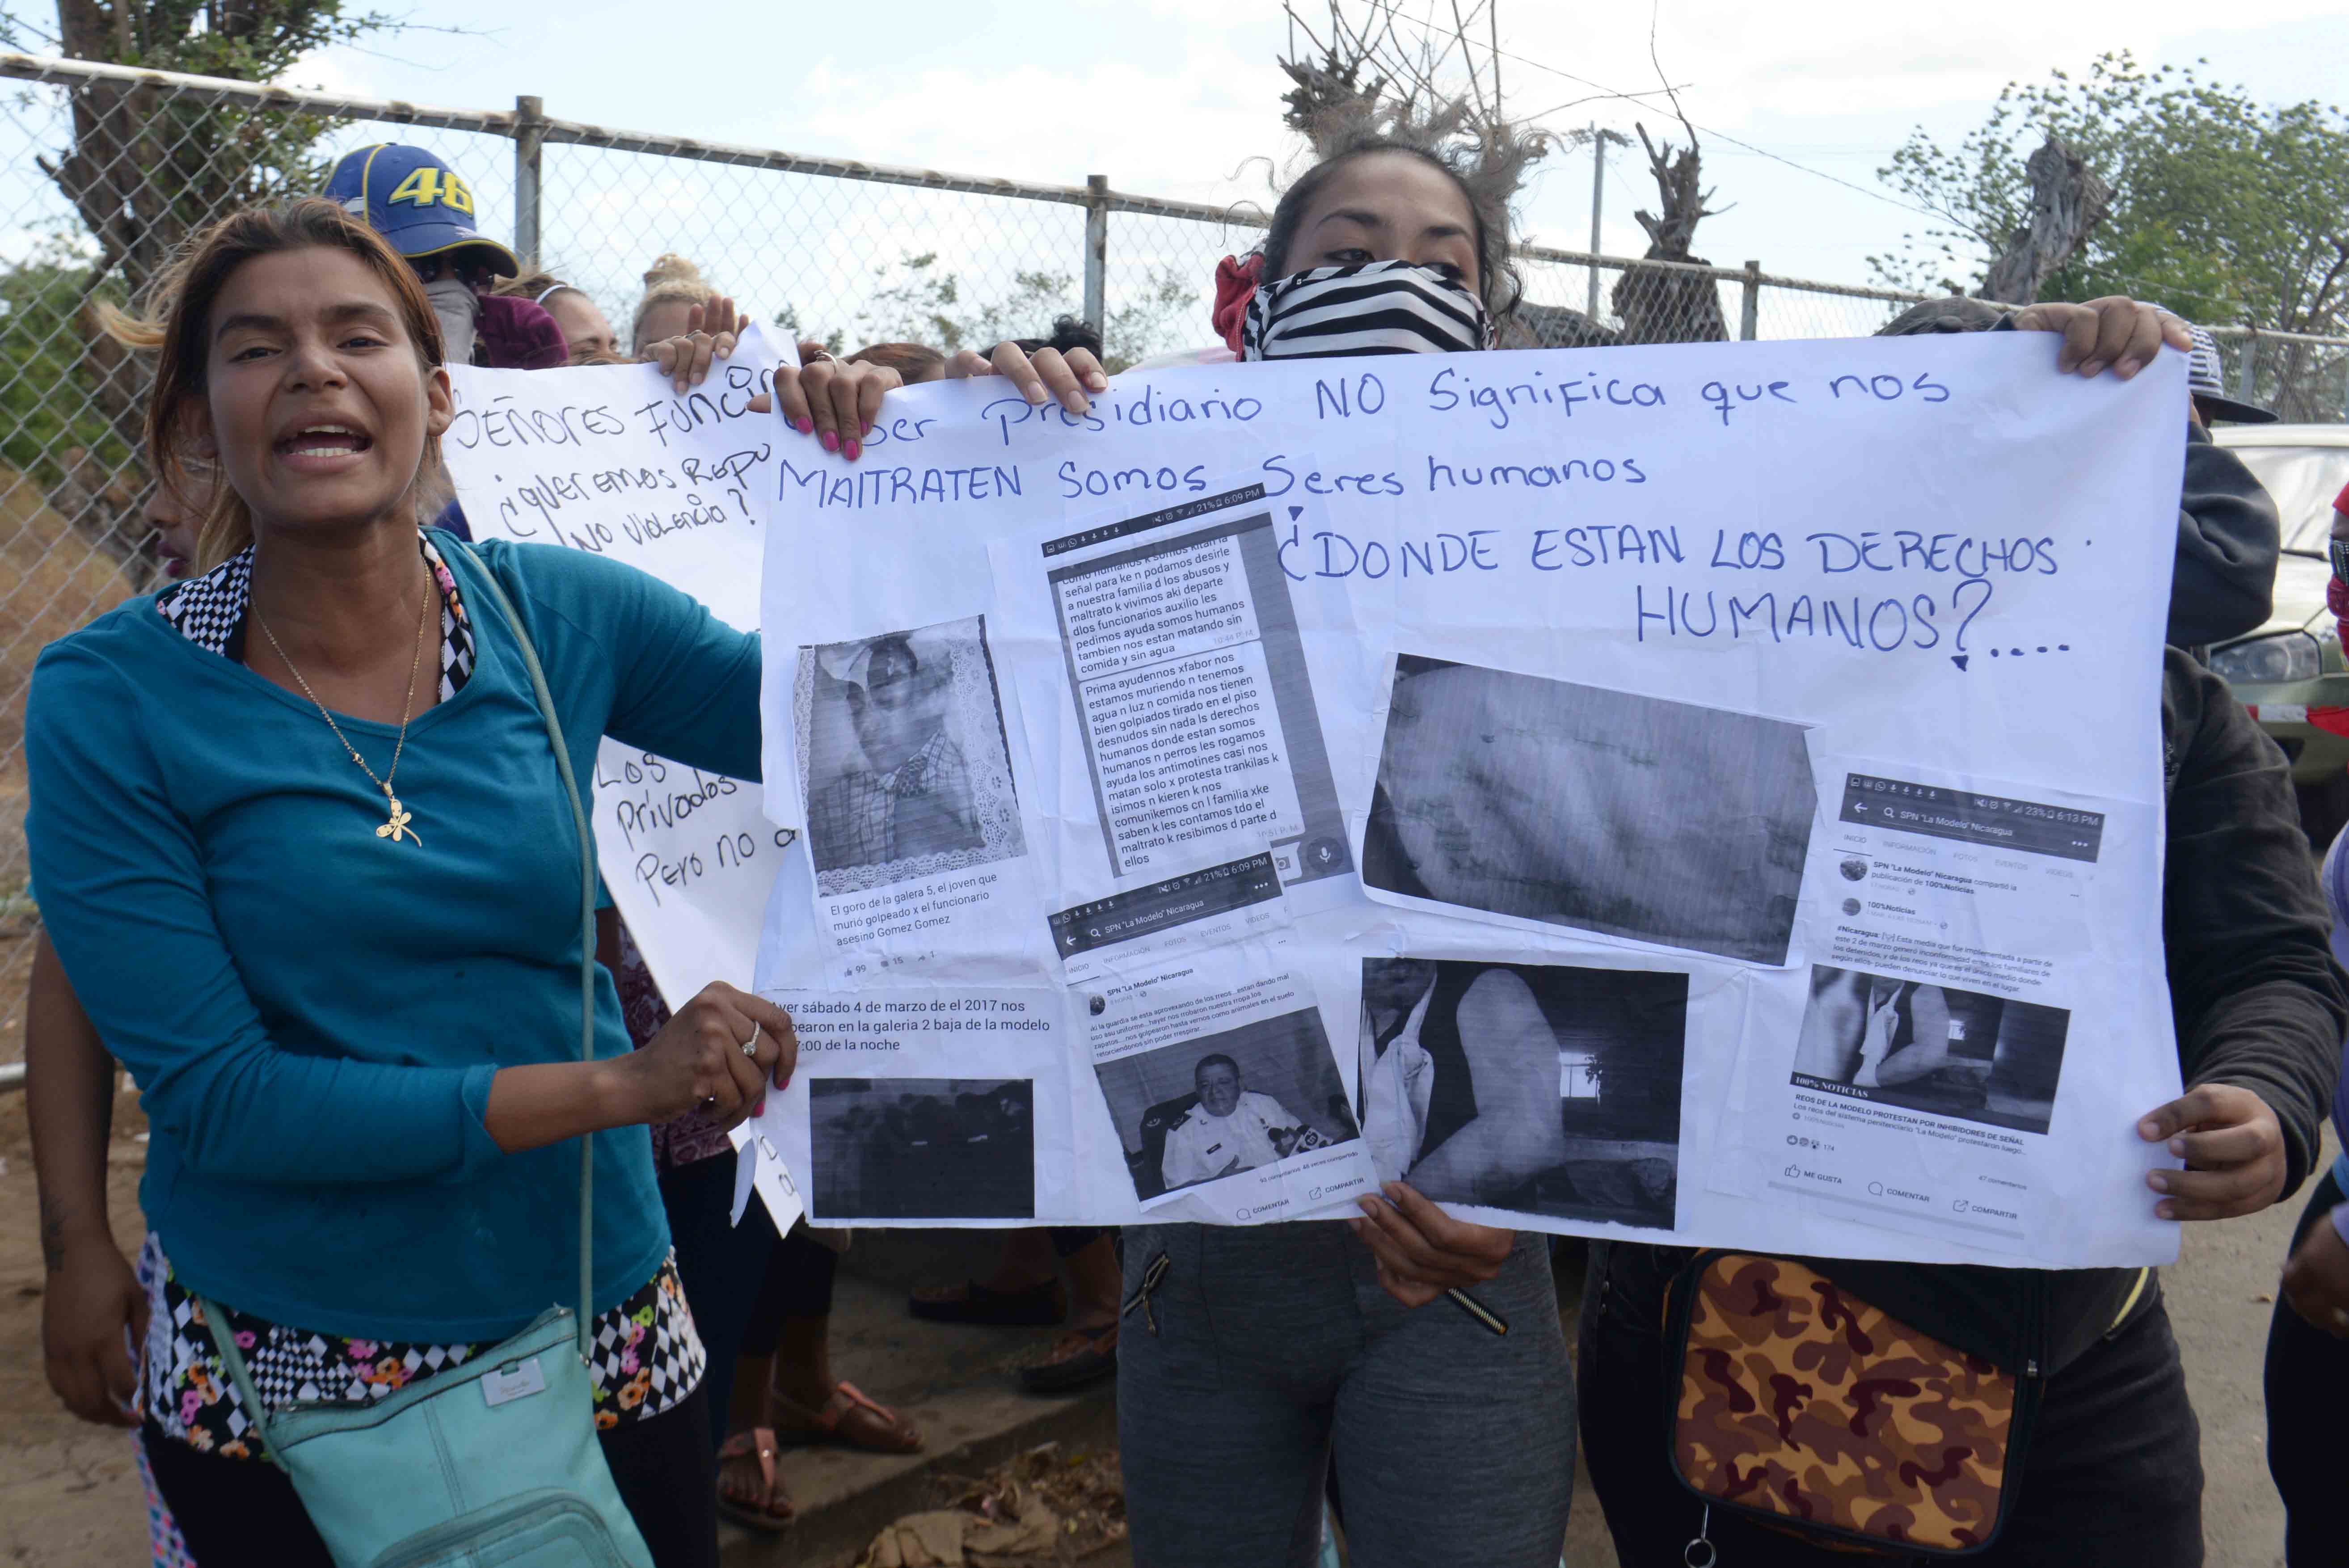 46
SEÑORES FUNCIO
¿QUEREMOS REPU
NO VIOLENCIA?
LOS
privados
Pero no a
Ser Presidiario NO Significa que nos
MAITRATEN Somos Seres humanos
¿DONDE ESTAN LOS DERECHOS
HUMANOS?....
21% 6:09 PM
como humanos k somos kitan la
señal para ke n podamos desirle
a nuestra familia d los abusos y
maltrato k vivimos aki departe
dlos funcionarios auxilio les
pedimos ayuda somos humanos
tambien nos estan matando sin
comida y sin agua
10:44 P. M.
Prima ayudennos xfabor nos
estamos muriendo n tenemos
agua n luz n comida nos tienen
bien golpiados tirado en el piso
desnudos sin nada ls derechos
humanos donde estan somos
humanos n perros les rogamos
ayuda los antimotines casi nos
matan solo x protesta trankilas k
isimos n kieren k nos
comunikemos cn l familia xke
saben k les contamos tdo el
maltrato k resibimos d parte d
ellos
10:51 P. M.
El goro de la galera 5, el joven que
murió golpeado x el funcionario
asesino Gomez Gomez
99 15 1
yer sábado 4 de marzo de el 2017 nos
pearon en la galeria 2 baja de la modelo
7:00 de la noche
21% 6:09 PM
SPN "La Modelo" Nicaragua
INICIO INFORMACIÓN FOTOS EVENTOS VIDEOS
SPN "La Modelo" Nicaragua
ki la guardia se esta aprovexando de los rreos...estan dando mal
uso asu uniforme...heyer nos rrobaron nuestra rropa los
zapatos....nos golpearon hasta vernos como animales en el suelo
retorciendonos sin poder rrespirar...
93 comentarios 46 veces compartido
COMENTAR COMPARTIR
23% 6:13 PM
SPN "La Modelo" Nicaragua
INICIO INFORMACIÓN FOTOS EVENTOS VIDEOS
SPN "La Modelo" Nicaragua compartió la
publicación de 100%Noticias.
100%Noticias
#Nicaragua: Esta media que fue implementada a partir de
este 2 de marzo generó inconformidad entre los familiares de
los detenidos, y de los reos ya que es el único medio donde
según ellos- pueden denunciar lo que viven en el lugar.
100% NOTICIAS
REOS DE LA MODELO PROTESTAN POR INHIBIDORES DE SEÑAL
Los reos del sistema penitenciario "La Modelo" protestaron luego...
174
47 comentarios
ME GUSTA COMENTAR COMPARTIR